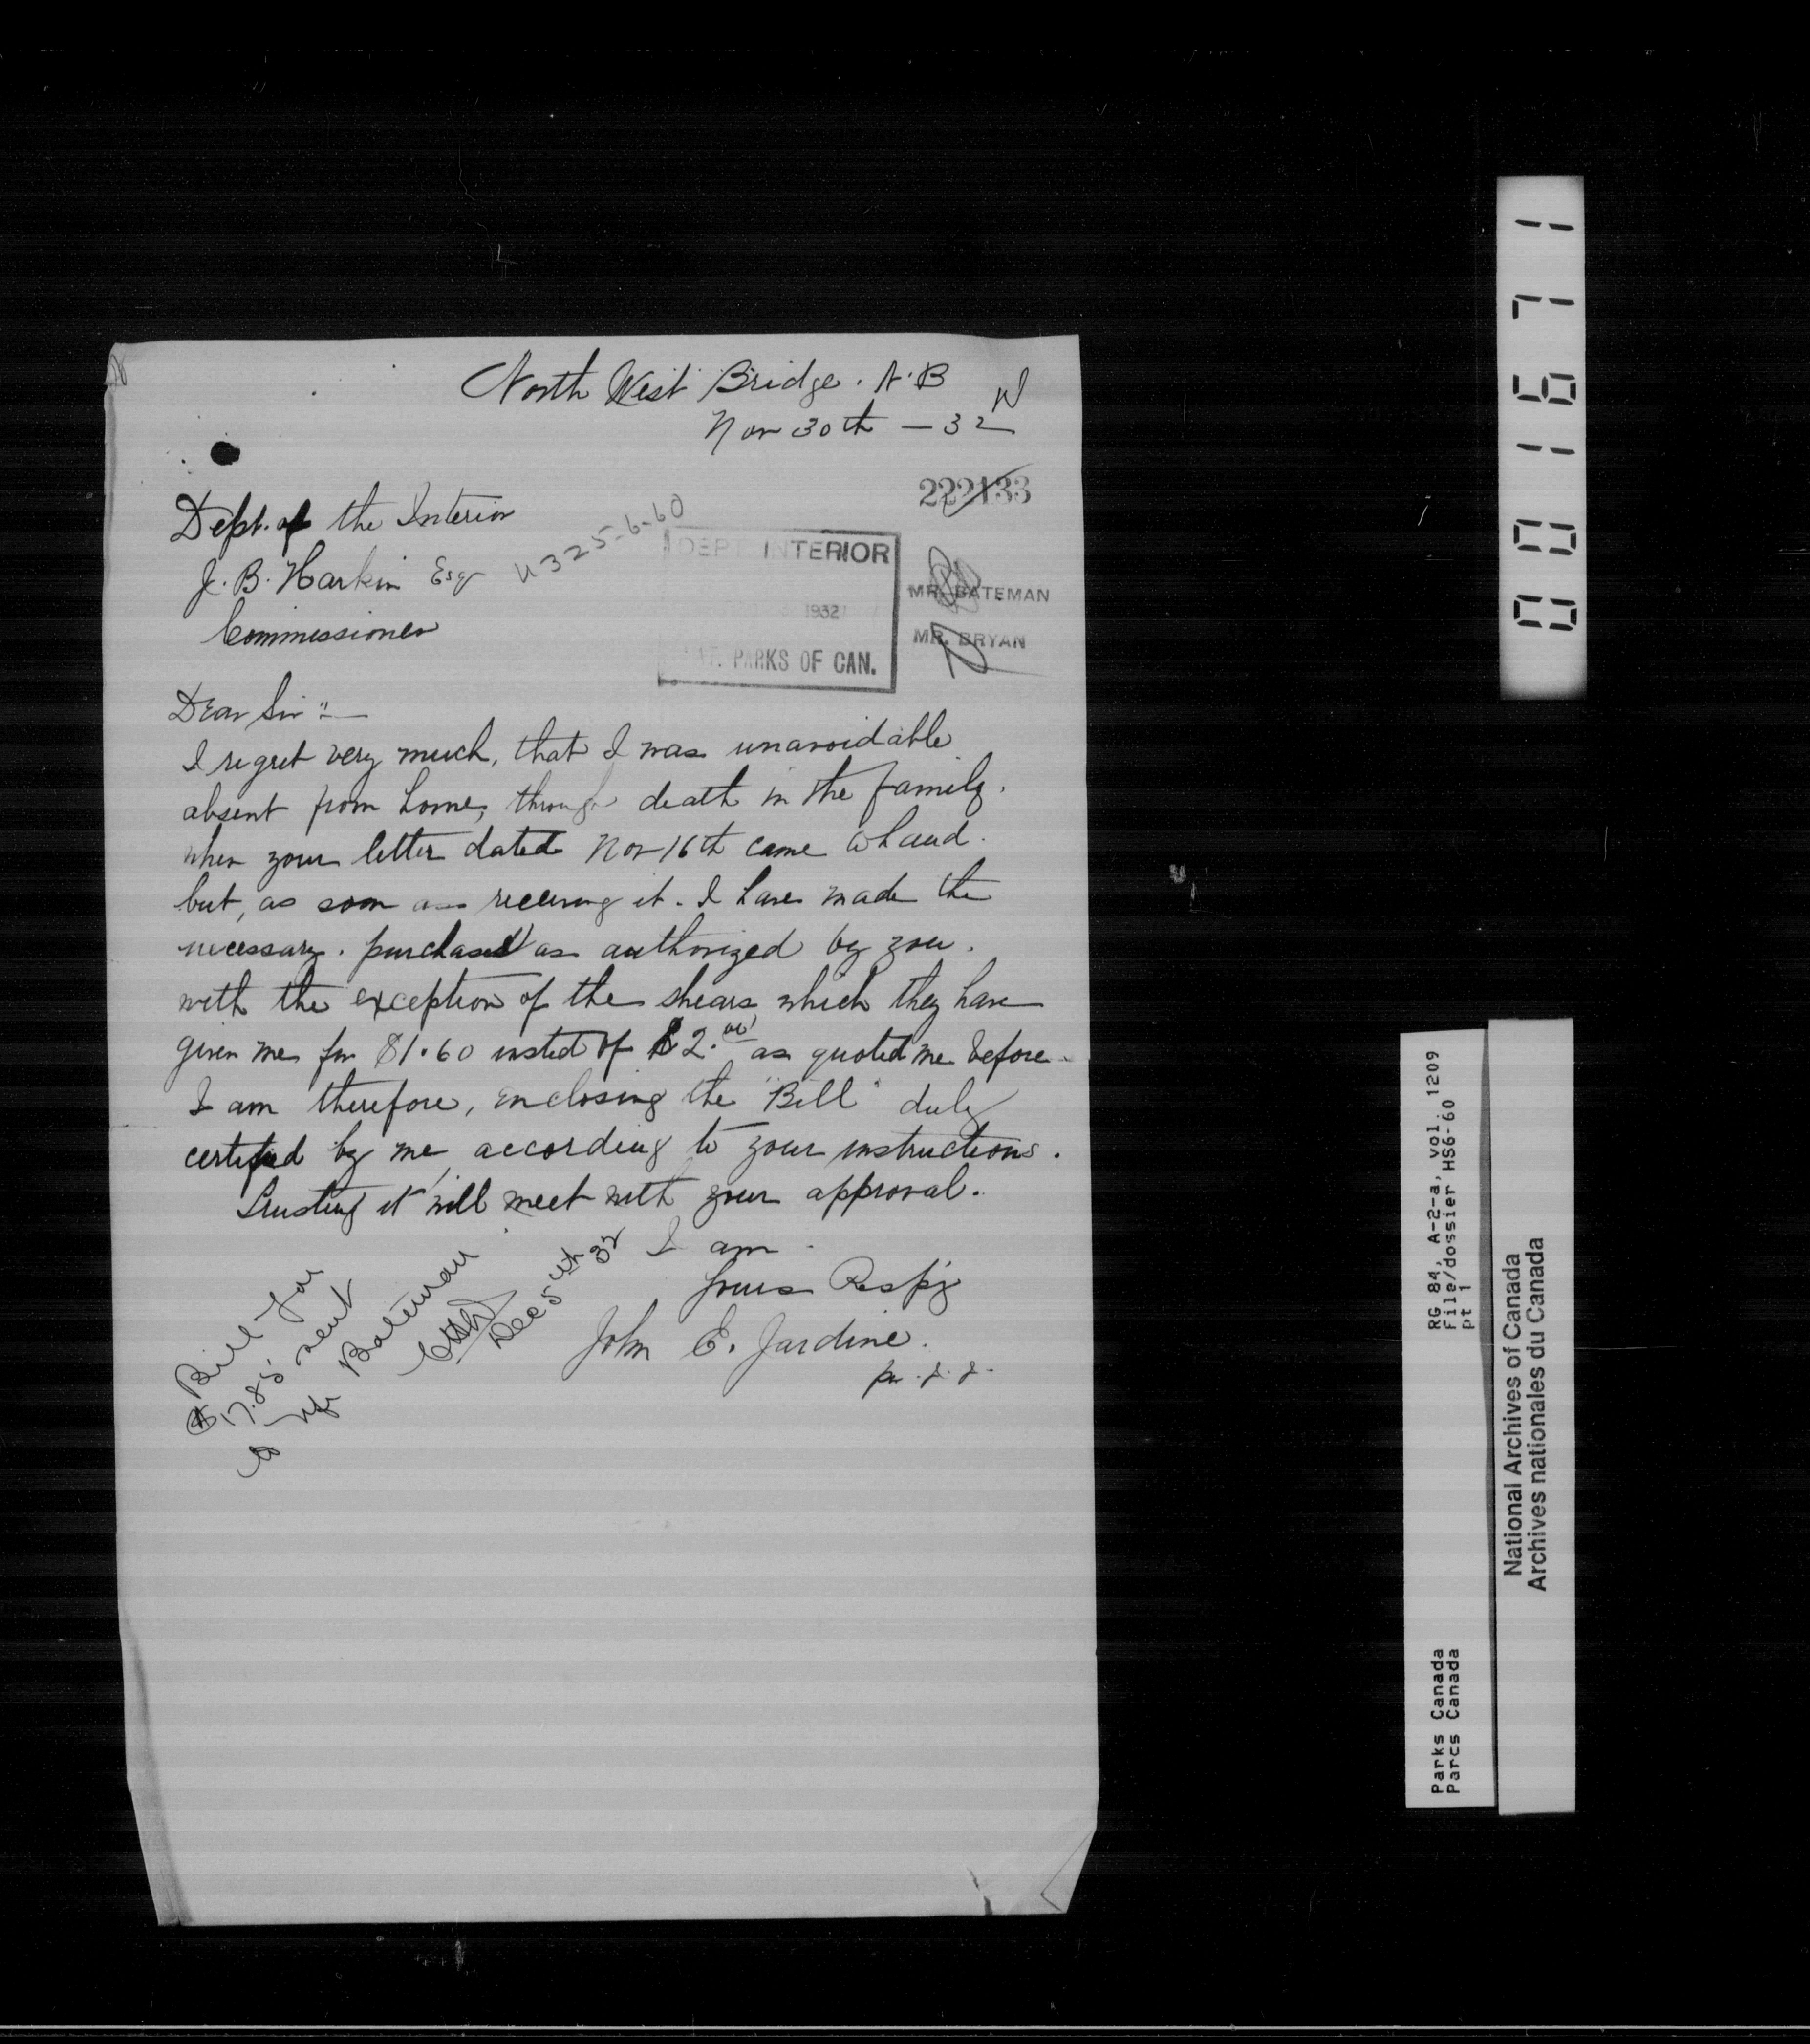 North West Bridge. N.B
Nov 30th — 32
222133
Dept. of the Interior
J. B. Harkin Esq
U325-6-60
Commissioner
DEPT. INTERIOR
1932
NAT. PARKS OF CAN.
MR. BATEMAN
MR. BRYAN
Dear Sir :—
I regret very much, that I was unavoidable
absent from home, through death in the family.
when your letter dated Nov 16th came to hand.
but, as soon as receiving it. I have made the
necessary. purchased as authorized by you.
with the exception of the shears, which they have
given me for $1.60 insted of $2.00 as quoted me before
I am therefore, enclosing the "Bill" duly
certified by me, according to your instructions.
Trusting it will meet with your approval.
I am
Yours Resp'y
John E. Jardine.
per. J. J.
Bill for
$17.85 sent
to Mr Bateman
Dec 5th 32
001671
RG 84, A-2-a, vol. 1209
File/dossier HS6-60
pt 1
Parks Canada
Parcs Canada
National Archives of Canada
Archives nationales du Canada